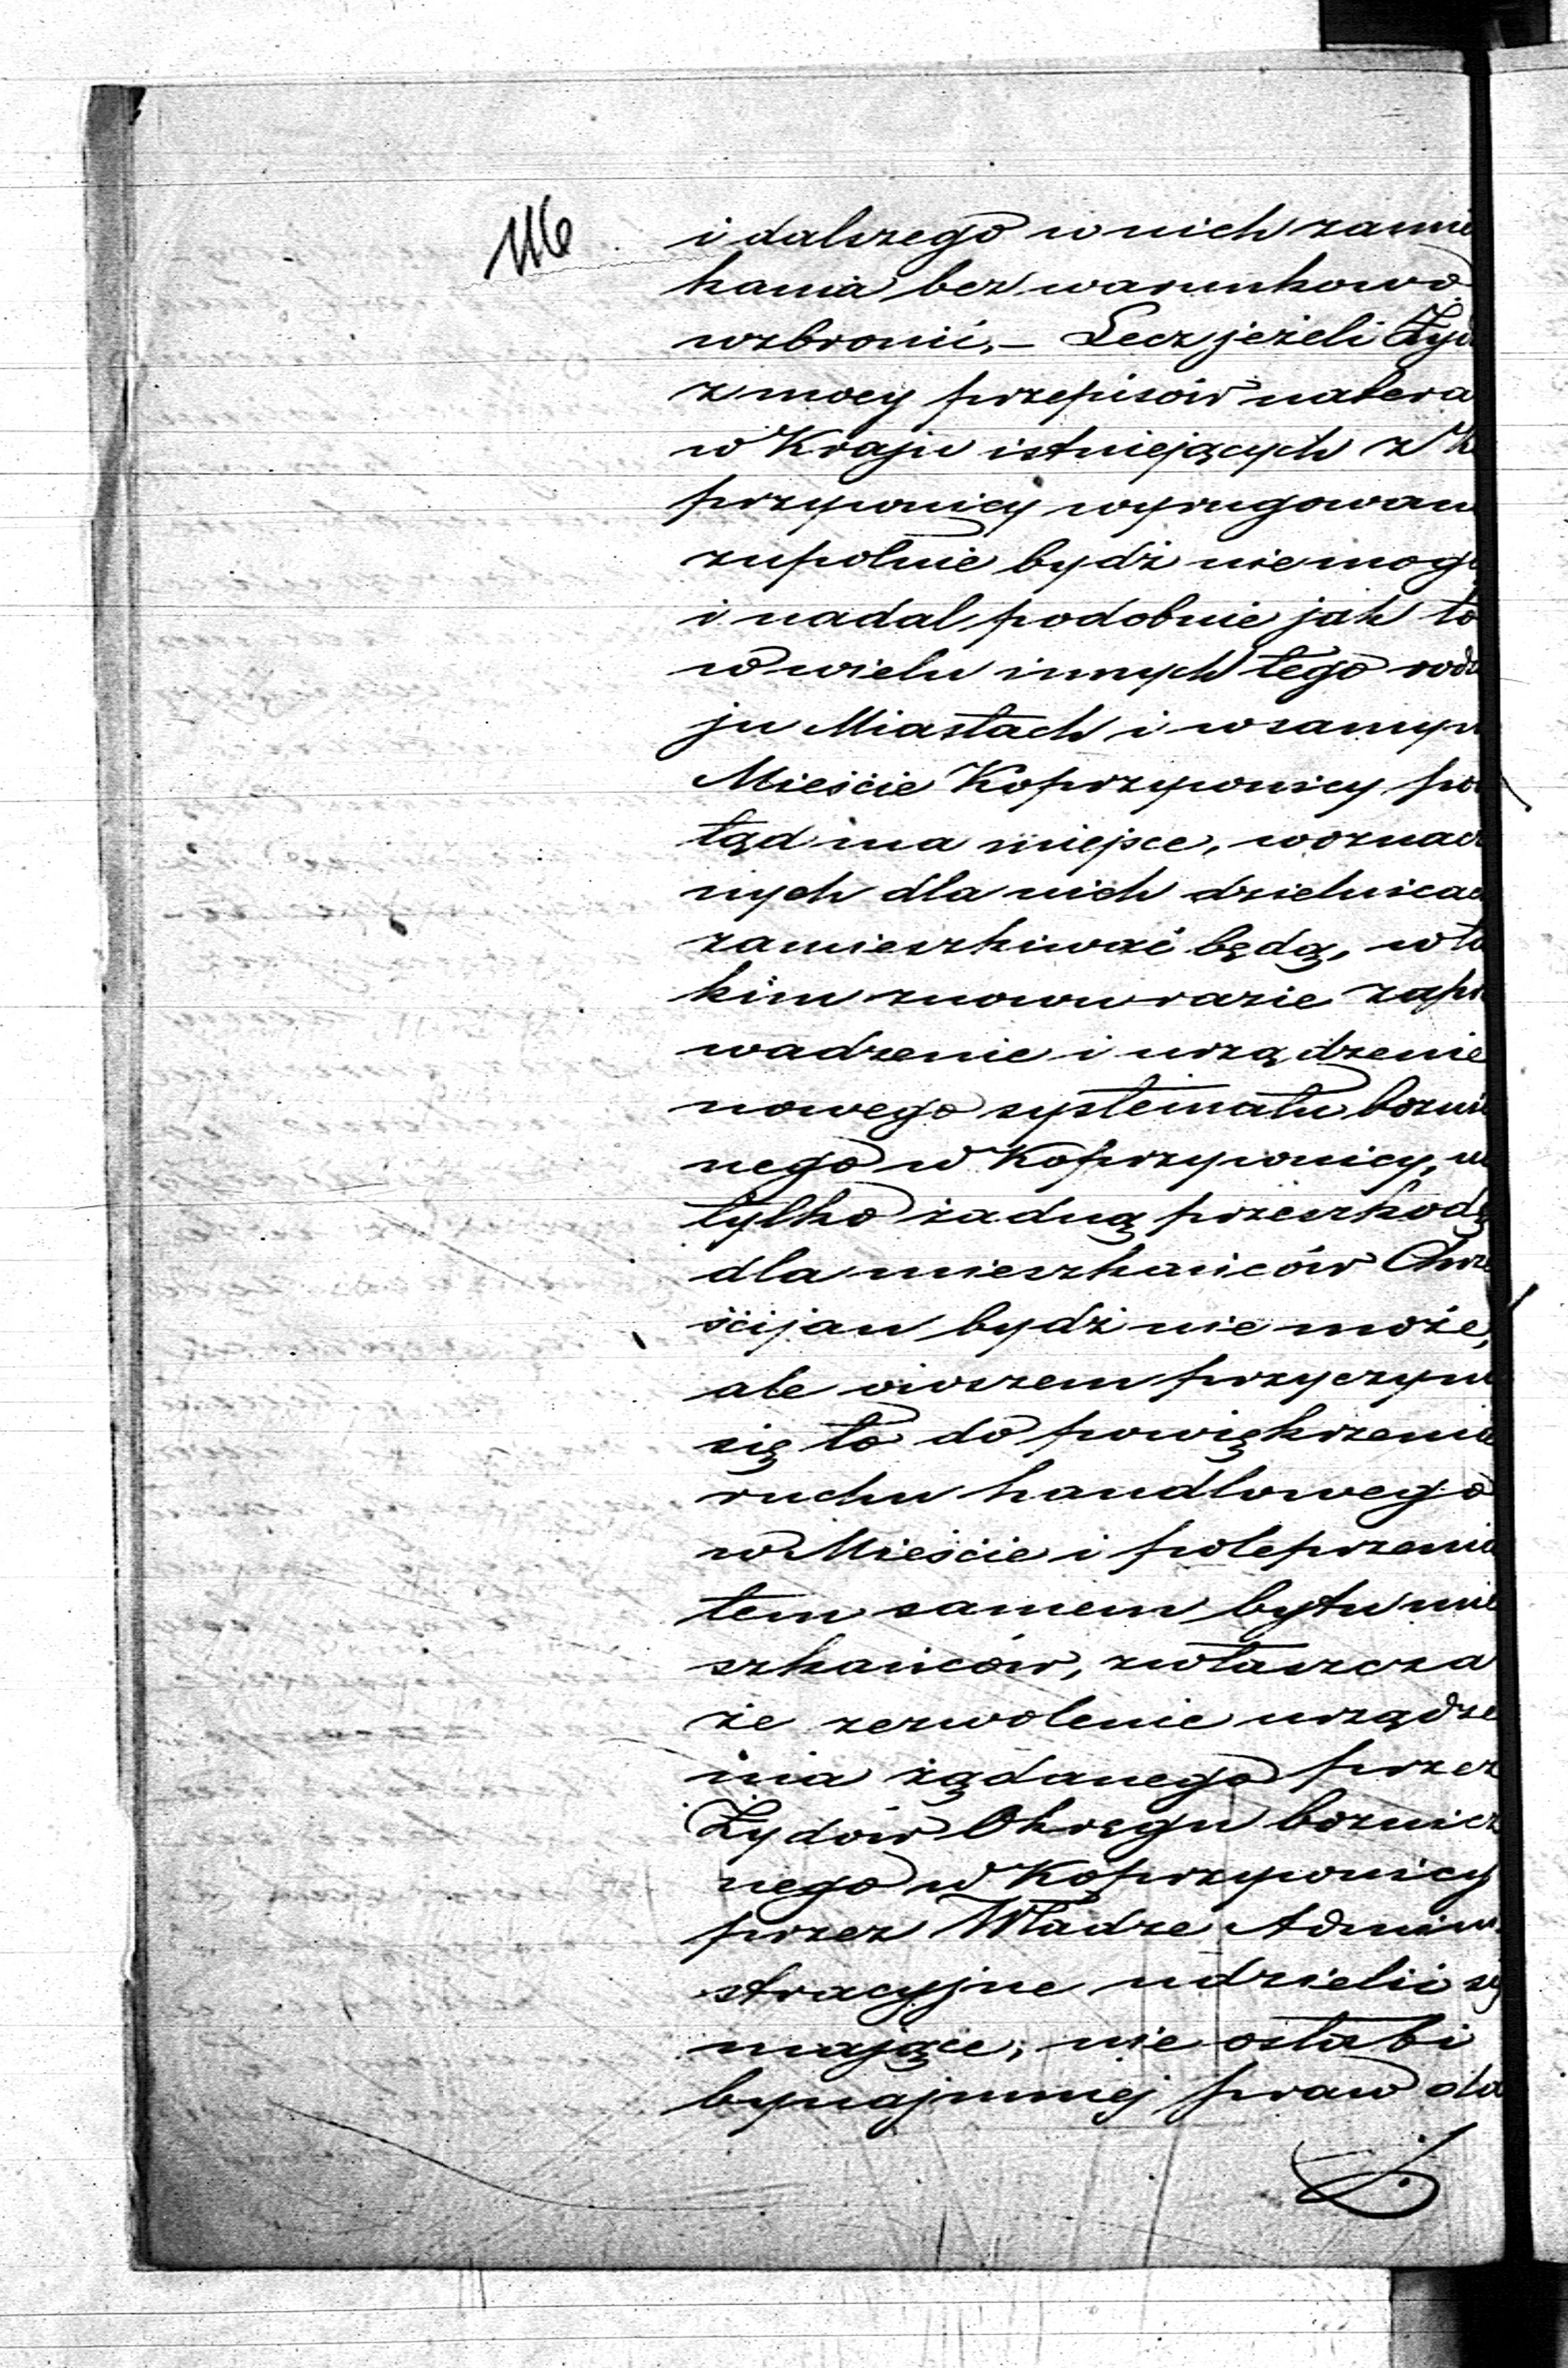 116
i dalszego w nich zamie
kania bez warunkowo
wzbronić, – Lecz jeżeli Żyd
z mocy przepisów na tera
w Kraju istniejących z K
przywnicy wyrugowan
zupełnie bydź nie mogą
i nadal podobnie jak to
w wielu innych tego rodza
ju Miastach i w samym
Mieście Koprzywnicy po
tąd ma miejsce, w oznacz
nych dla nich dzielnicac
zamieszkiwać będą, w ta
kim znowu razie zapro
wadzenie i urządzenie
nowego systematu bożni
nego w Koprzywnicy, ni
tylko żadną przeszkodą
dla mieszkańców Chrze
ścijan bydź nie może,
ale owszem przyczyni
się to do powiększenia
ruchu handlowego
w Mieście i polepszenia
tem samem bytu mie
szkańców, zwłaszcza
że zezwolenie urządze
nia żądanego przez
Żydów Okręgu bożnicz
nego w Koprzywnicy
przez Władze Admini
stracyjne udzielić się
mające, nie osłabi
bynajmniej praw da